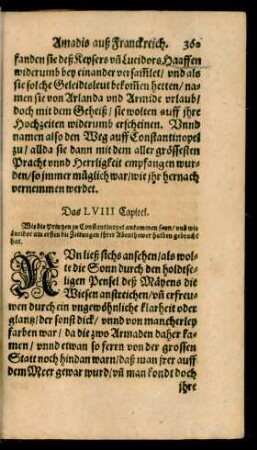 Amadis auß Franckreich. 360
fanden sie deß Keysers vñ Lucidors Haaffen
widerumb bey einander versam̃let/ vnd als
sie solche Geleidtsleut bekom̃en hetten/ na-
men sie von Arlanda vnd Armide vrlaub/
doch mit dem Geheiß/ sie wolten auff jhre
Hochzeiten widerumb erscheinen. Vnnd
namen also den Weg auff Constantinopel
zu/ allda sie dann mit dem aller grössesten
Pracht vnnd Herrligkeit empfangen wur-
den/ so jmmer müglich war/ wie jhr hernach
vernemmen werdet.
Das LVIII Capitel.
Wie die Printzen zu Constantinopel ankommen seyn/ vnd wie
Lucidor am ersten die Zeitungen jhrer Abenthewer halben gebracht
hat.
NVn ließ sichs ansehen/ als wol-
te die Sonn durch den holdtse-
ligen Pensel deß Mäyens die
Wiesen anstreichen/ vñ erfreu-
wen durch ein vngewöhnliche klarheit oder
glantz/ der sonst dick/ vnnd von mancherley
farben war/ da die zwo Armaden daher ka-
men/ vnnd etwan so ferrn von der grossen
Statt noch hindan warn/ daß man jrer auff
dem Meer gewar wurd/ vñ man kondt doch
jhre